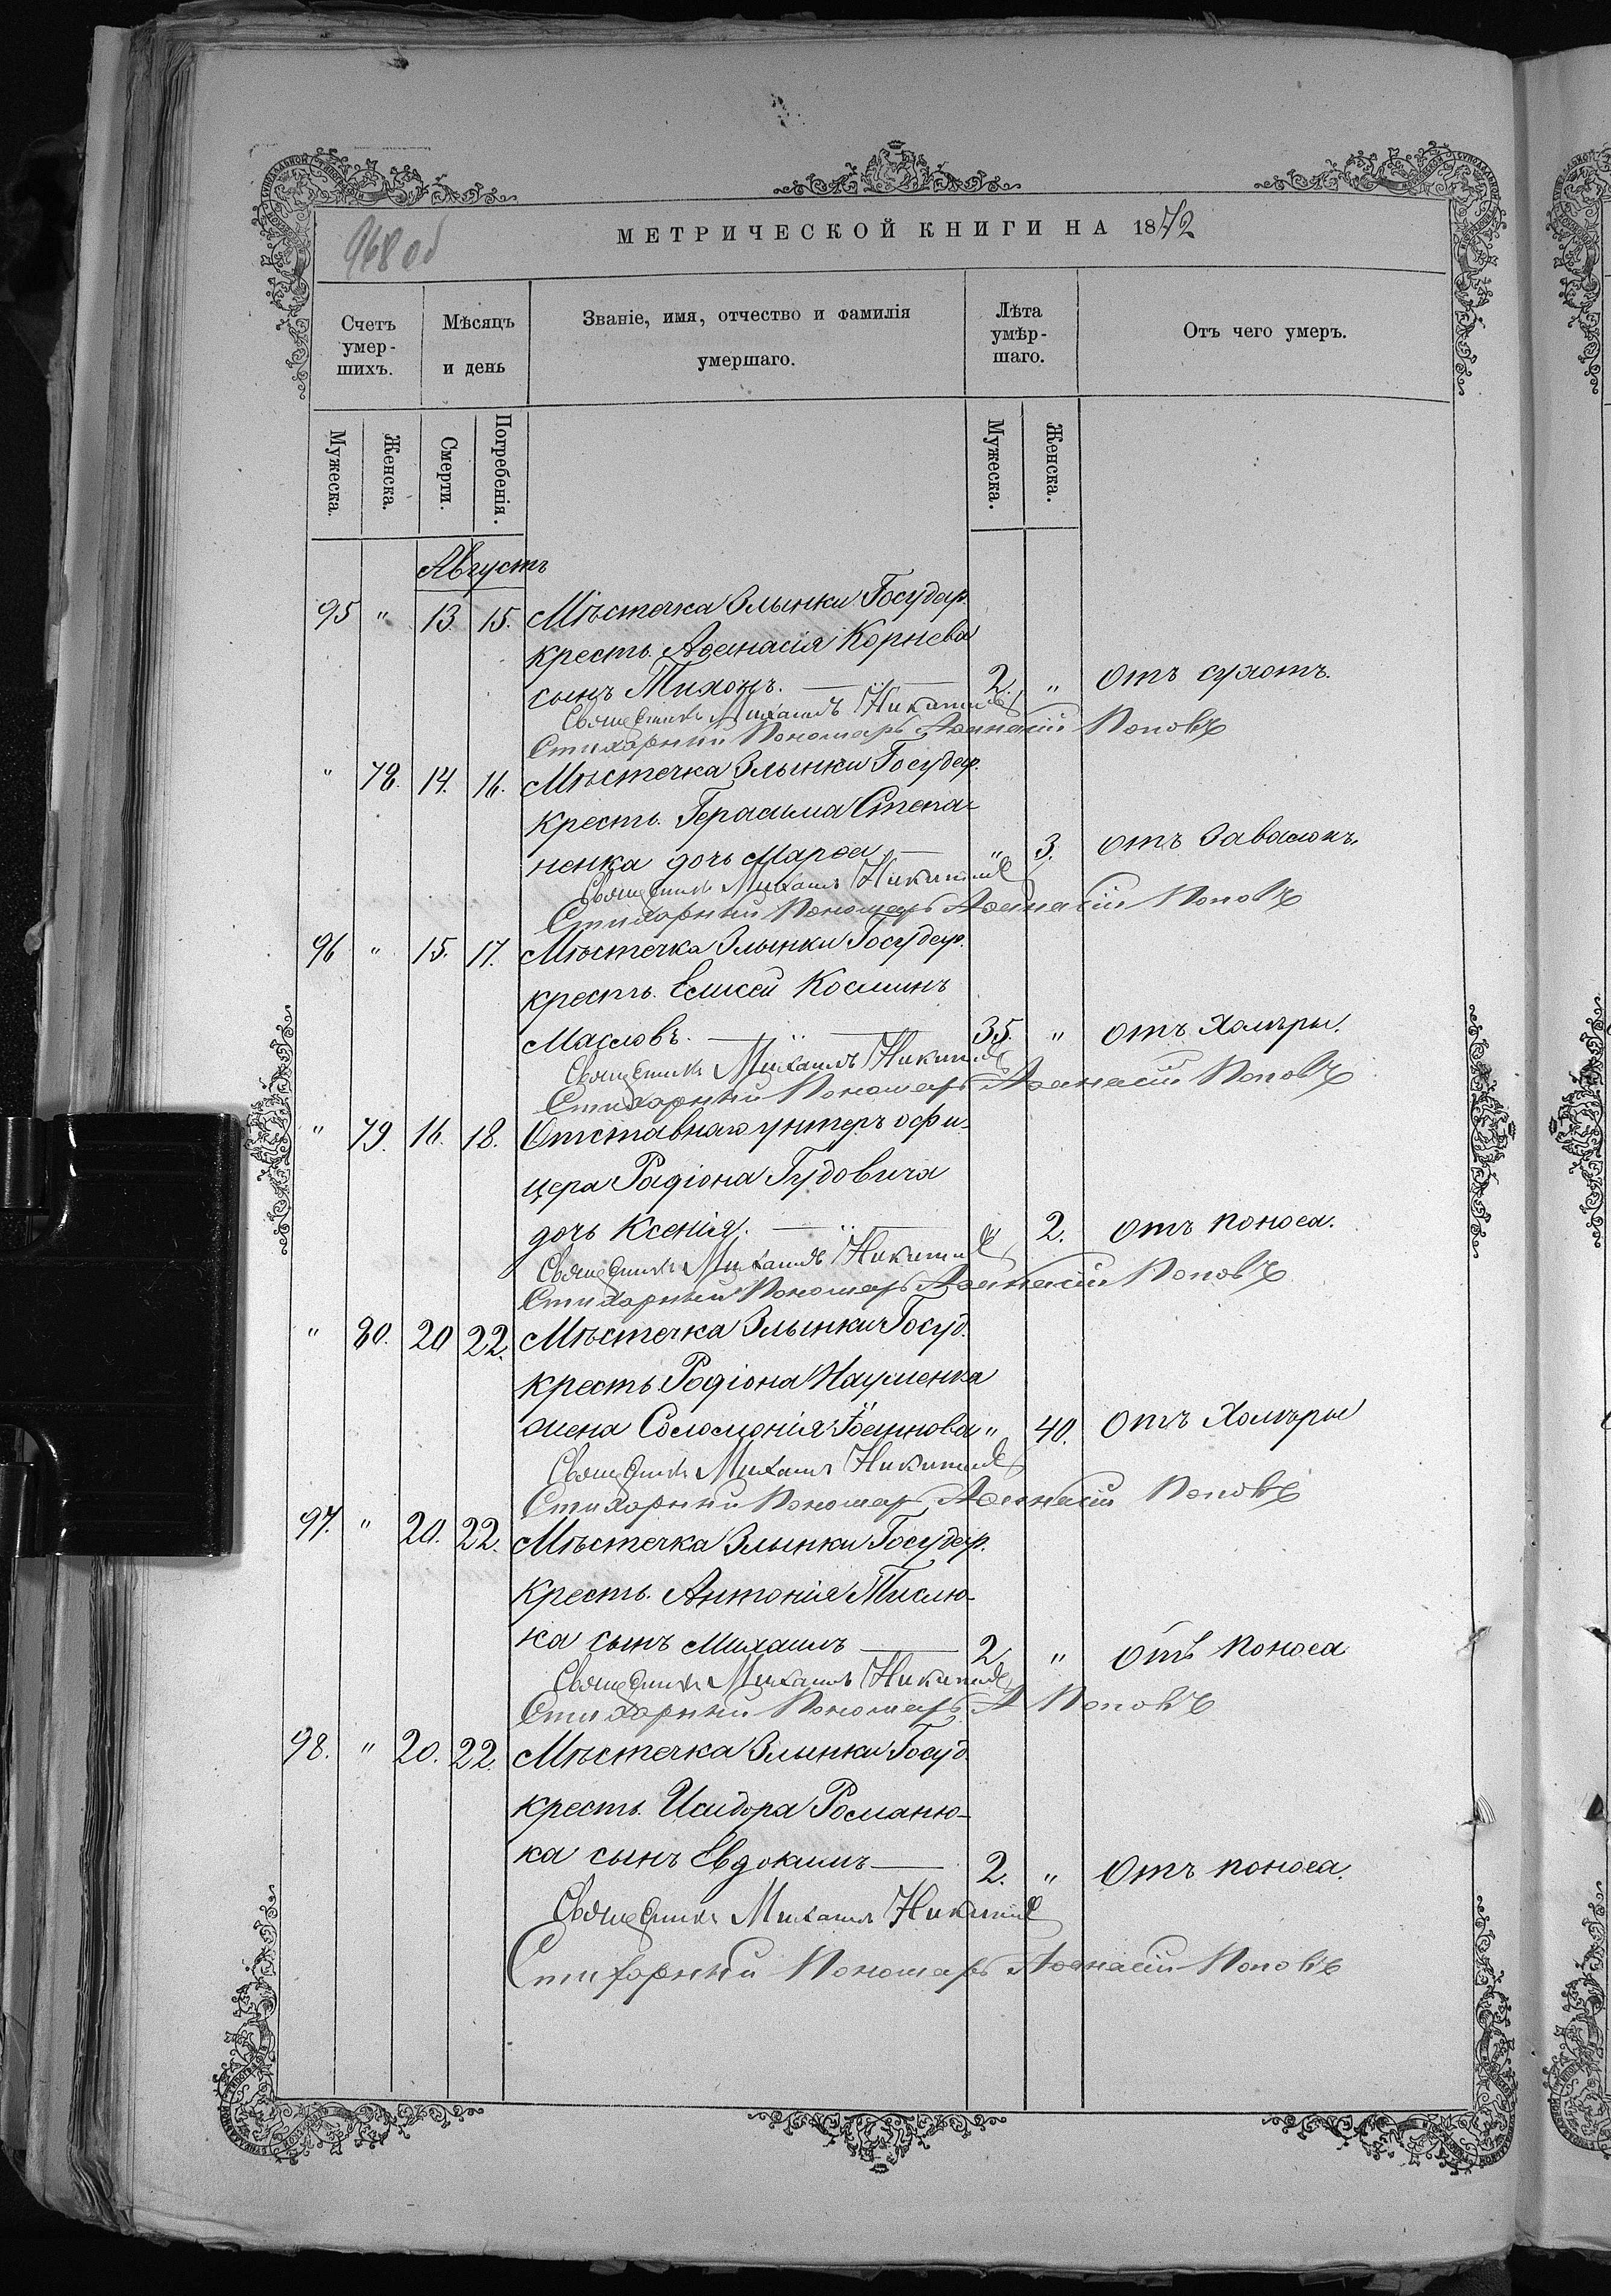 968 об
МЕТРИЧЕСКОЙ КНИГИ НА 1872
Счетъ умер-шихъ.
Мѣсяцъ и день
Званіе, имя, отчество и фамилія умершаго.
Лѣта умѣр-шаго.
Отъ чего умеръ.
Мужеска.
Женска.
Смерти.
Погребенія.
Мужеска.
Женска.
Августъ
95 " 13 15. Мѣстечка Злынки Государ.
кресть. Аѳанасія Корнева
сынъ Тихонъ. 2. " Отъ сухотъ.
Священникъ Михаилъ Никитинъ
Стихарный Пономарь Аѳанасій Поповъ
" 78. 14. 16. Мѣстечка Злынки Государ.
кресть. Герасима Степа-
ненка дочь Марѳа " 3. отъ Завалокъ.
Священникъ Михаилъ Никитинъ
Стихарный Пономарь Аѳанасій Поповъ
96 " 15. 17. Мѣстечка Злынки Государ.
кресть. Елисей Косминъ
Масловъ. 35. " отъ Холѣры.
Священникъ Михаилъ Никитинъ
Стихарный Пономарь Аѳанасій Поповъ
" 79. 16. 18. Отставнаго унтеръ офи-
цера Радіона Гудовича
дочь Ксенія. 2. отъ поноса.
Священникъ Михаилъ Никитинъ
Стихарный Пономарь Аѳанасій Поповъ
" 80. 20 22. Мѣстечка Злынки Госуд.
кресть. Родіона Науменка
жена Соломонія " 40. Отъ Холѣры
Священникъ Михаилъ Никитинъ
Стихарный Пономарь Аѳанасій Поповъ
97. " 20. 22. Мѣстечка Злынки Государ.
кресть. Антонія Тислю-
ка сынъ Михаилъ 2 " Отъ поноса
Священникъ Михаилъ Никитинъ
Стихарный Пономарь А Поповъ
98. " 20. 22. Мѣстечка Злынки Госуд.
кресть. Исидора Романю-
ка сынъ Евдокимъ 2. " Отъ поноса.
Священникъ Михаилъ Никитинъ
Стихарный Пономарь Аѳанасій Поповъ